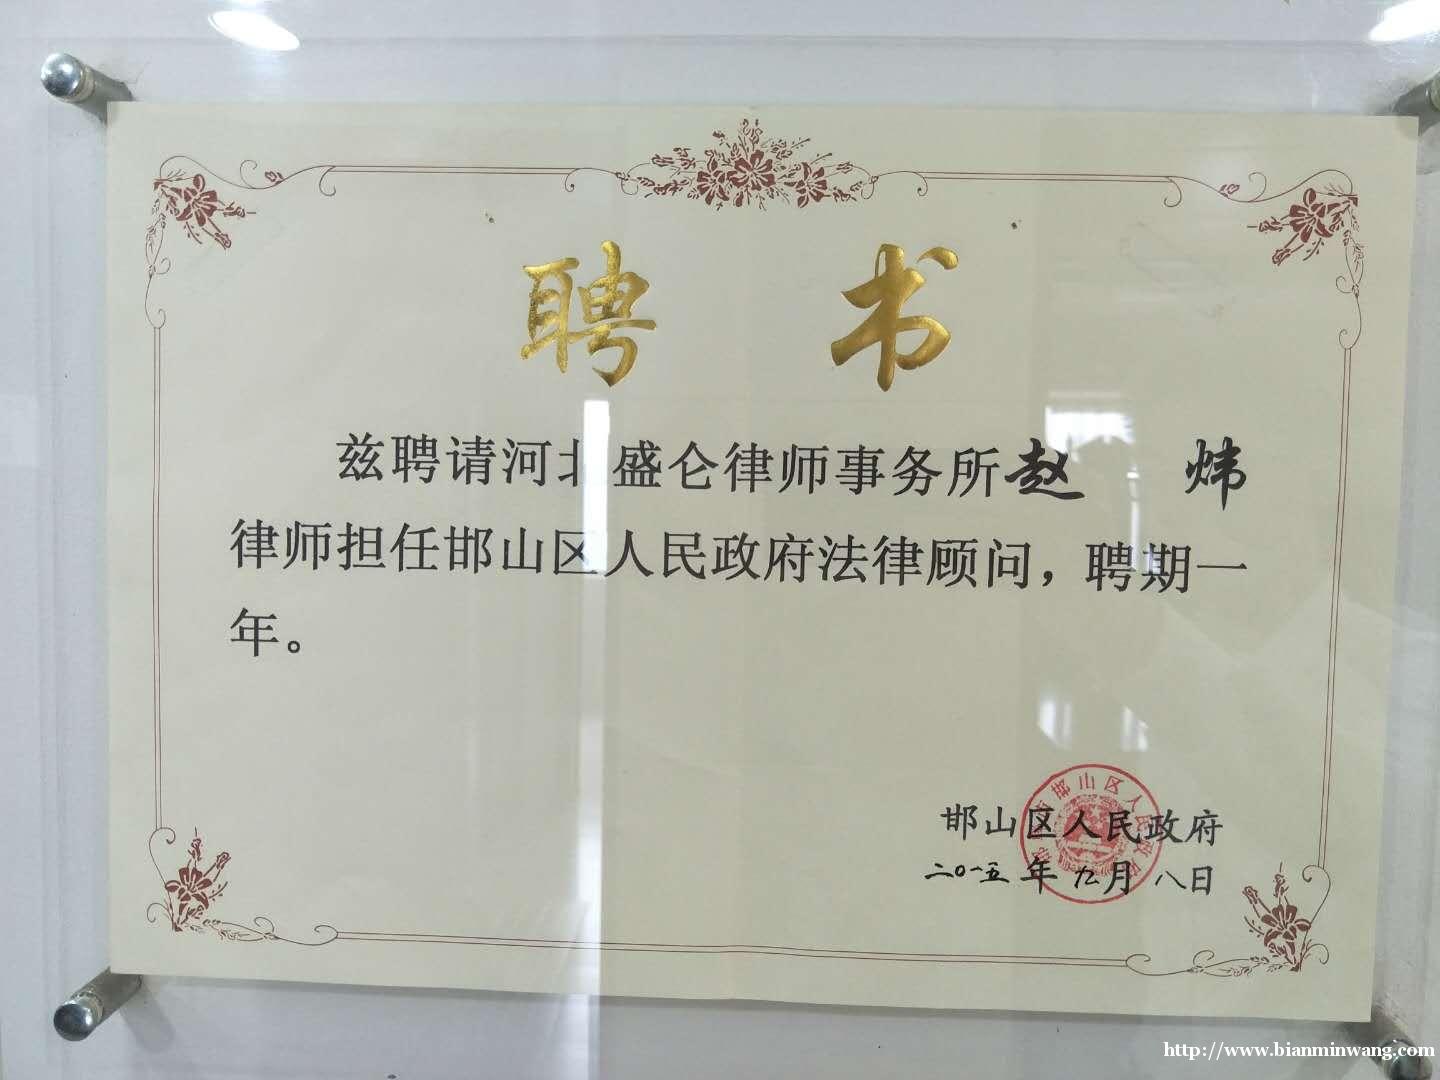 聘 书
兹聘请河北盛仑律师事务所赵 炜
律师担任邯山区人民政府法律顾问，聘期一
年。
邯山区人民政府
二〇一五年九月八日
邯山区人民政
http://www.bianminwang.com